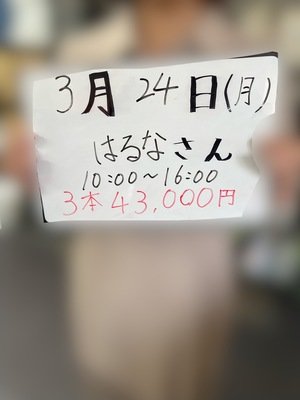 3月24日(月)
はるなさん
10:00～16:00
3本43,000円